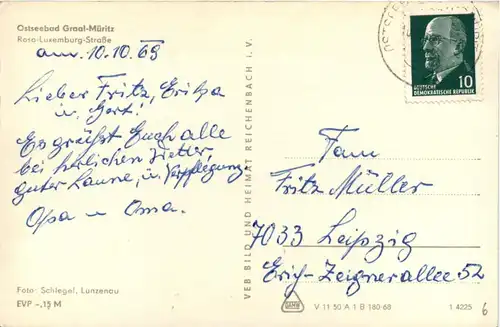 Ostseebad Graal-Müritz
Rosa-Luxemburg-Straße
am. 10.10.69
Lieber Fritz, Erika
u. Gert!
Es grüßt Euch alle
bei herrlichen Wetter,
guter Laune, u. Verpflegung.
Opa u Oma.
Foto: Schlegel, Lunzenau
EVP -,15 M
VEB BILD UND HEIMAT REICHENBACH i. V.
10
DEUTSCHE
DEMOKRATISCHE REPUBLIK
Fam
Fritz Müller
7033 Leipzig
Erich-Zeignerallee 52
V 11 50 A 1 B 180-68
1 4225
6